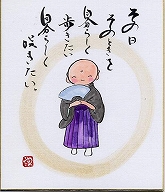 その日
そのときを
自分らしく
歩きたい
自分らしく
咲きたい。